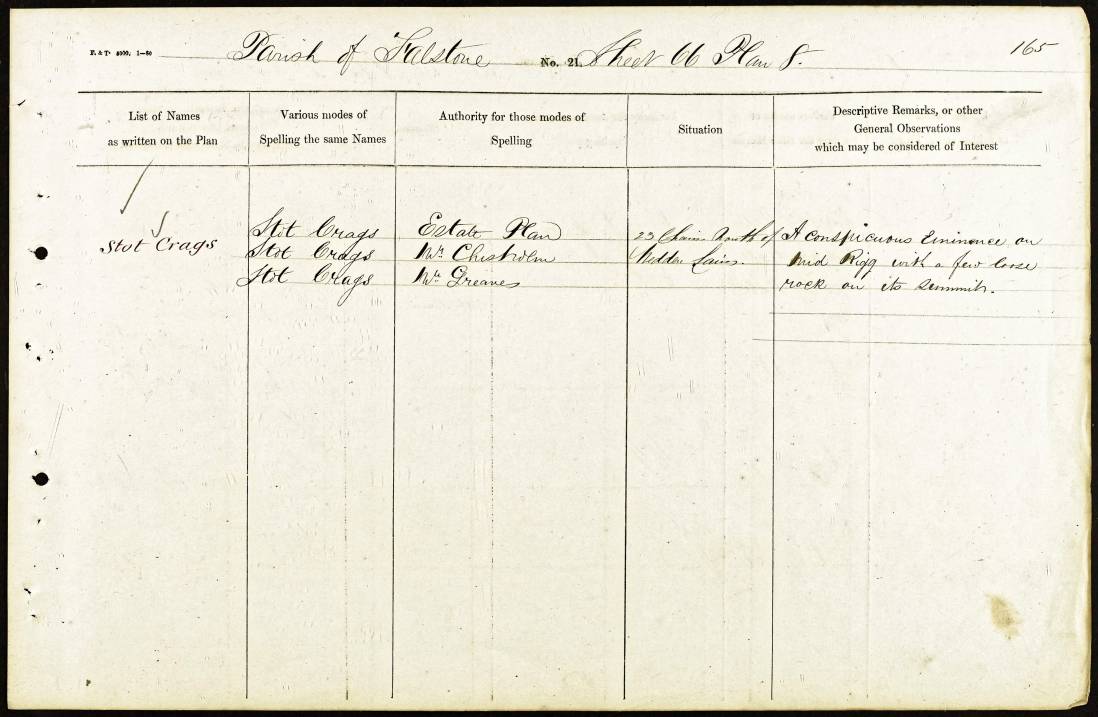 Parish of Falstone No. 21. Sheet 66 Plan 8. 165
List of Names
as written on the Plan
Various modes of
Spelling the same Names
Authority for those modes of
Spelling
Situation
Descriptive Remarks, or other
General Observations
which may be considered of Interest
Stot Crags
Stot Crags
Stot Crags
Stot Crags
Estate Plan
Mr. Chisholm
Mr. Greaves
23 Chains South of
A conspicuous Eminence on
Mid Rigg with a few loose
rock on its summit.